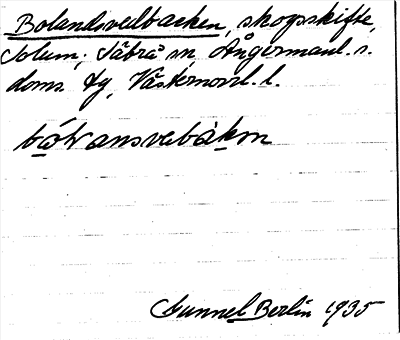 Bolandsvedbacken, skogsskifte,
Solum; Säbrå sn, Ångermanl. s.
doms. fg, Västernorrl. l.
Gunnel Berlin 1935